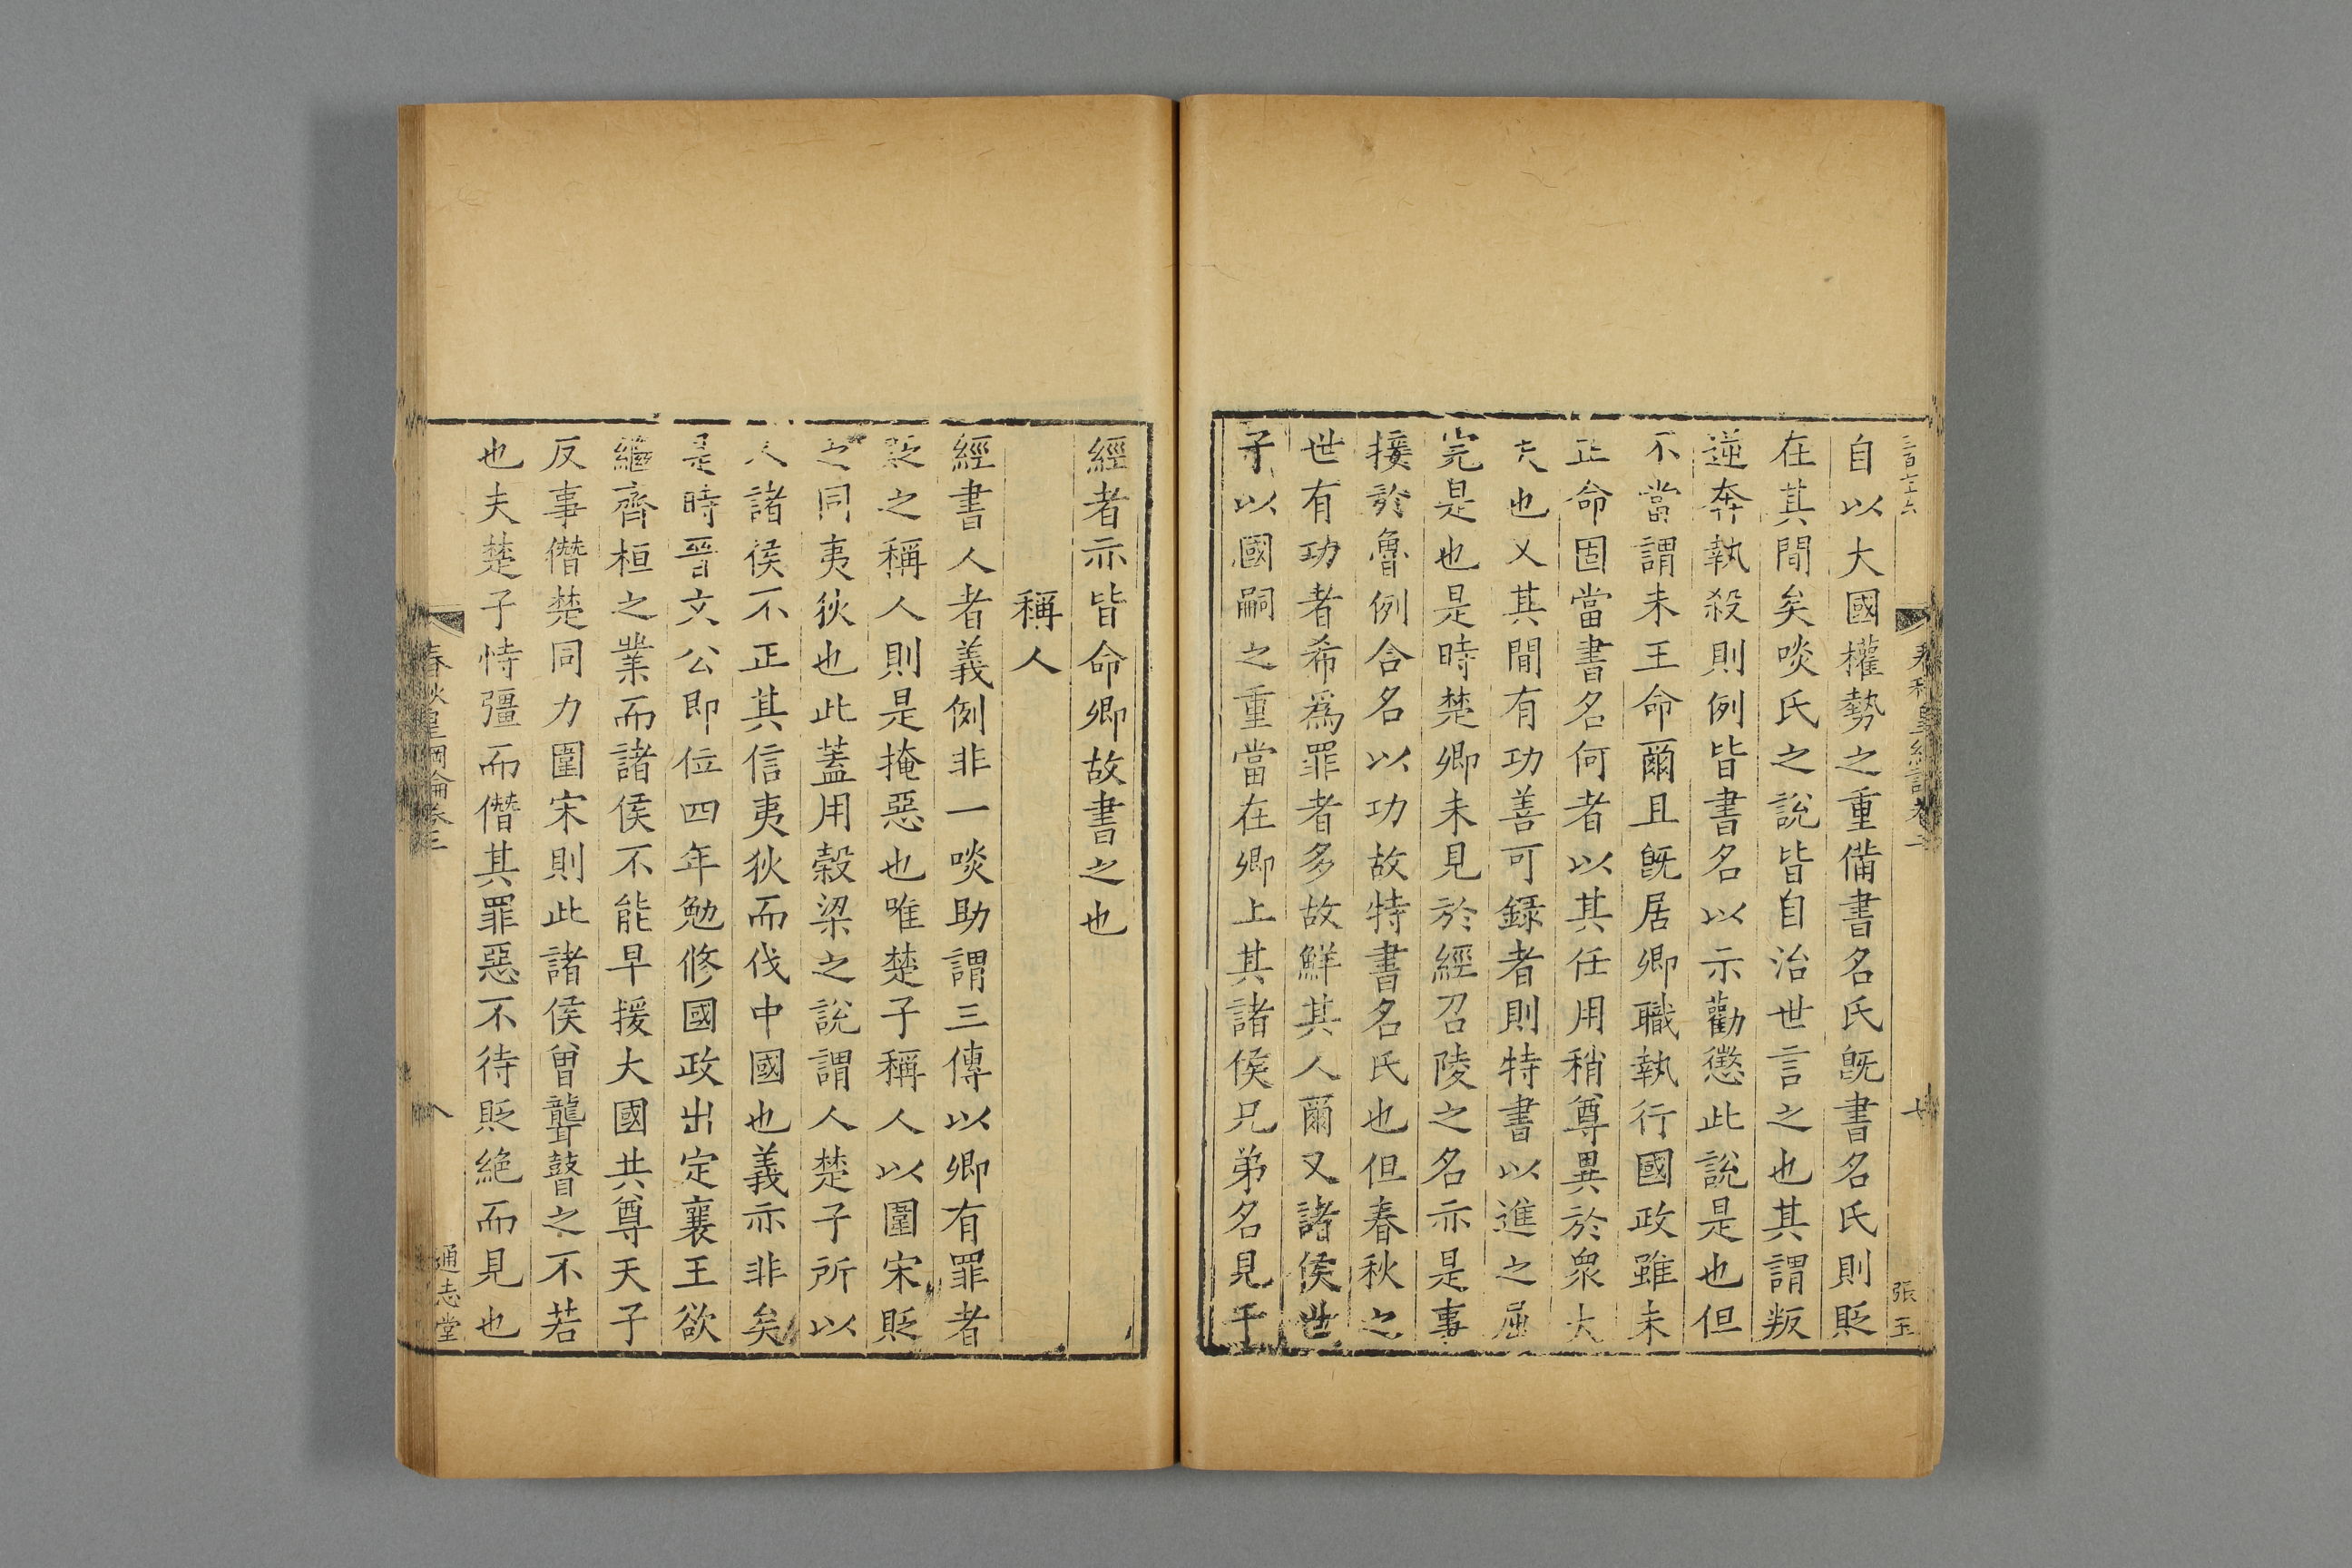 自以大國權勢之重備書名氏旣書名氏則貶
在其間矣啖氏之說皆自治世言之也其謂叛
逆奔執殺則例皆書名以示勸懲此說是也但
不當謂未王命爾且旣居卿職執行國政雖未
正命固當書名何者以其任用稍尊異於衆大
夫也又其間有功善可録者則特書以進之屈
完是也是時楚卿未見於經召陵之名亦是事
接於魯例合名以功故特書名氏也但春秋之
世有功者希爲罪者多故鮮其人爾又諸侯世
子以國嗣之重當在卿上其諸侯兄弟名見于
張玉
經者亦皆命卿故書之也
稱人
經書人者義例非一啖助謂三傳以卿有罪者
貶之稱人則是掩惡也唯楚子稱人以圍宋貶
之同夷狄也此蓋用榖梁之說謂人楚子所以
人諸侯不正其信夷狄而伐中國也義亦非矣
是時晉文公即位四年勉修國政出定襄王欲
繼齊桓之業而諸侯不能早援大國共尊天子
反事僭楚同力圍宋則此諸侯曽聾瞽之不若
也夫楚子恃彊而僭其罪惡不待貶絶而見也
春秋皇綱論卷三
八
通志堂